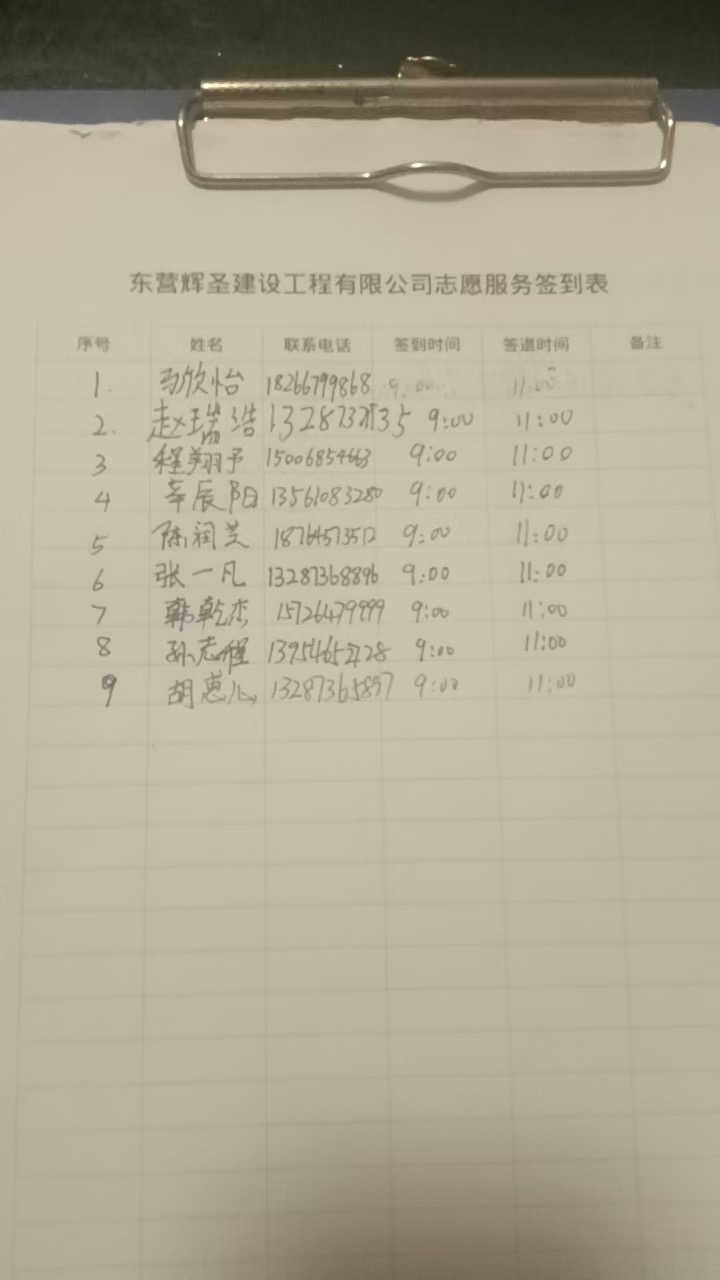 东营辉圣建设工程有限公司志愿服务签到表
序号 姓名 联系电话 签到时间 签退时间 备注
1. 马欣怡 18266799868 9:00 11:00
2. 赵瑞浩 9:00 11:00
3 程翔予 15006854663 9:00 11:00
4 辛辰阳 13561083280 9:00 11:00
5 陈润芝 18764573512 9:00 11:00
6 张一凡 13287368896 9:00 11:00
7 韩乾杰 15726479999 9:00 11:00
8 孙志程 9:00 11:00
9 胡惠儿 13287365897 9:00 11:00